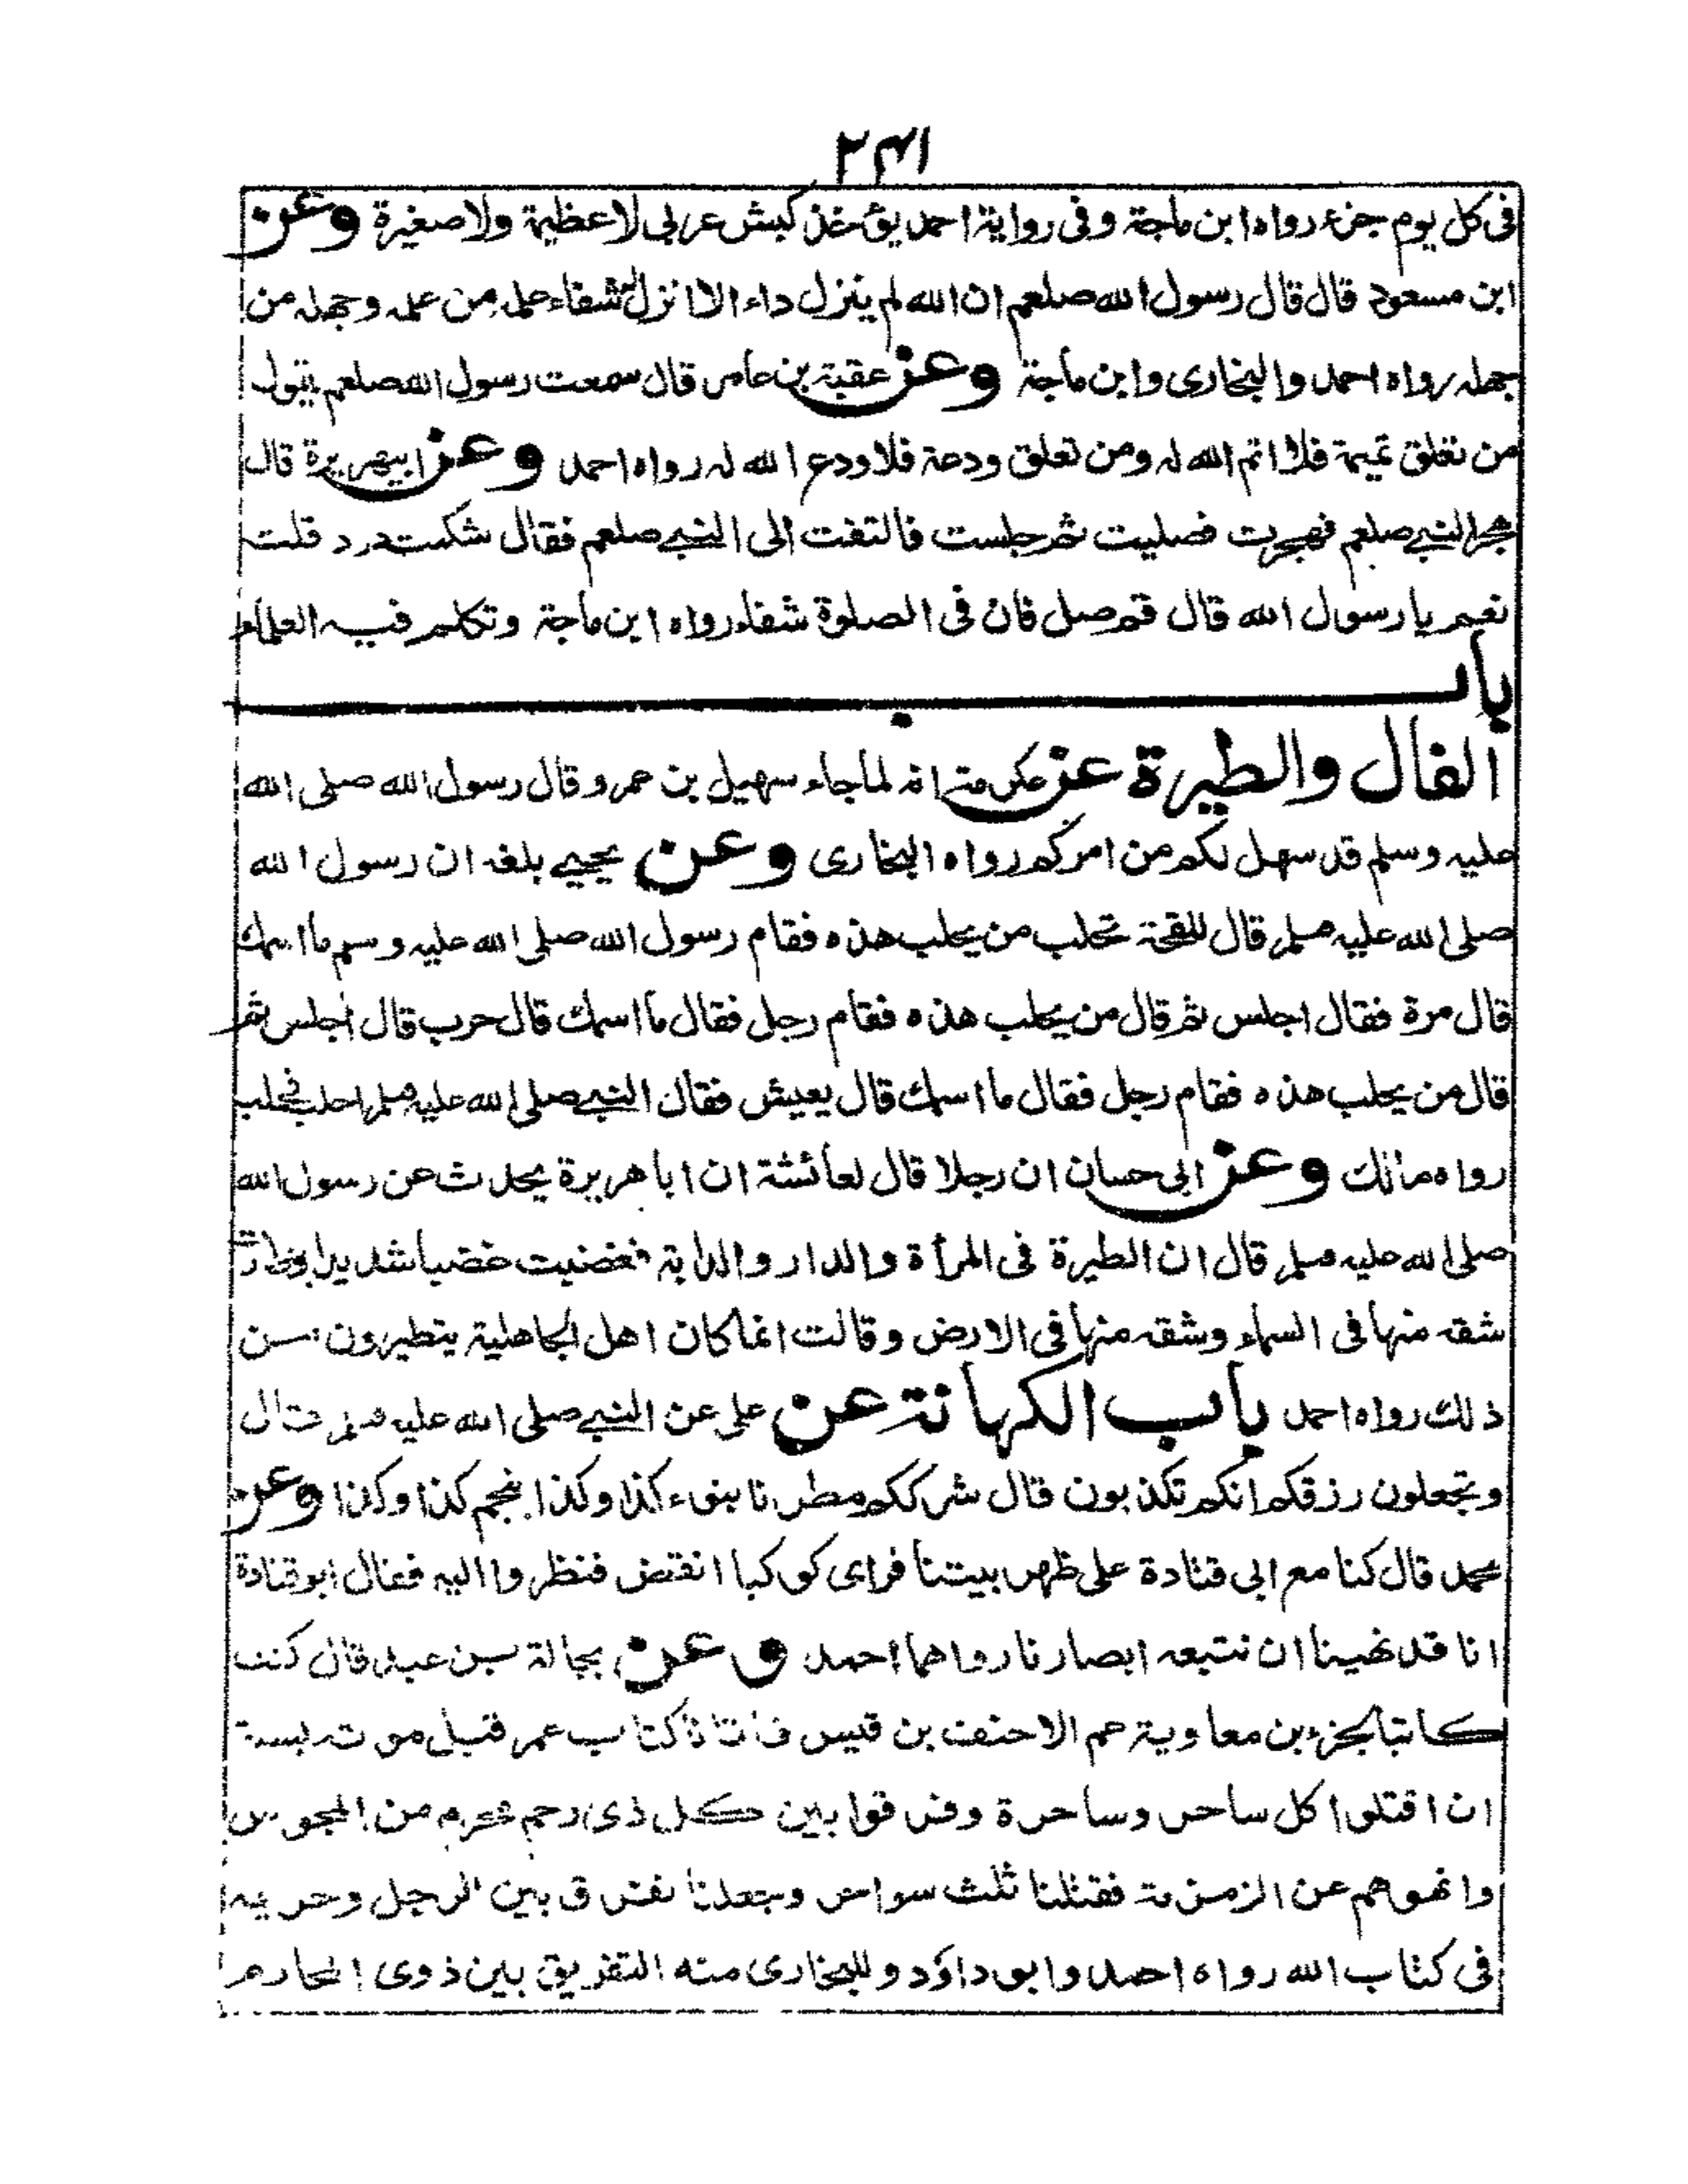 ٢٣١
فى كل يوم جزء رواه ابن ماجة وفى رواية احمد يؤخذ كبش عربى لا عظيمة ولا صغيرة وعن
ابن مسعود قال قال رسول الله صلعم ان الله لم ينزل داء الا انزل له شفاء علمه من علمه وجهله من
جهله رواه احمد والبخارى وابن ماجة وعن عقبة بن عامر قال سمعت رسول الله صلعم يقول
من تعلق تميمة فلا اتم الله له ومن تعلق ودعة فلا ودع الله له رواه احمد وعن ابيهريرة قال
هجر النبى صلعم فهجرت فصليت ثم جلست فالتفت الى النبى صلعم فقال شكمت درد قلت
نعم يا رسول الله قال قم صل فان فى الصلوة شفاء رواه ابن ماجة وتكلم فيه العلماء
باب
الفال والطيرة عن عكرمة انه لما جاء سهيل بن عمرو قال رسول الله صلى الله
عليه وسلم قد سهل لكم من امركم رواه البخارى وعن يحيى بلغه ان رسول الله
صلى الله عليه وسلم قال للقحة تحلب من يحلب هذه فقام رسول الله صلى الله عليه وسم ما اسمك
قال مرة فقال اجلس ثم قال من يحلب هذه فقام رجل فقال ما اسمك قال حرب قال اجلس ثم
قال من يحلب هذه فقام رجل فقال ما اسمك قال يعيش فقال النبى صلى الله عليه وسلم احلب فحلب
رواه مالك وعن ابى حسان ان رجلا قال لعائشة ان ابا هريرة يحدث عن رسول الله
صلى الله عليه وسلم قال ان الطيرة فى المرأة والدار والدابة فغضبت غضبا شديدا وطارت
شقه منها فى السماء وشقه منها فى الارض وقالت انما كان اهل الجاهلية يتطيرون من
ذلك رواه احمد باب الكهانة عن على عن النبى صلى الله عليه وسلم قال
وتجعلون رزقكم انكم تكذبون قال شرككم مطرنا بنوء كذا وكذا بنجم كذا وكذا وعن
محمد قال كنا مع ابى قتادة على ظهر بيتنا فراى كوكبا انقض فنظروا اليه فقال ابو قتادة
انا قد نهينا ان نتبعه ابصارنا رواهما احمد وعن بجالة بن عبد قال كنت
كاتبا لجزء بن معاوية عم الاحنف بن قيس فاتانا كتاب عمر قبل موته بسنة
ان اقتلوا كل ساحر وساحرة وفرقوا بين كل ذى رحم محرم من المجوس
وانهوهم عن الزمزمة فقتلنا ثلث سواحر وجعلنا نفرق بين الرجل وحريمه
فى كتاب الله رواه احمد وابو داؤد وللبخارى منه التفريق بين ذوى المحارم